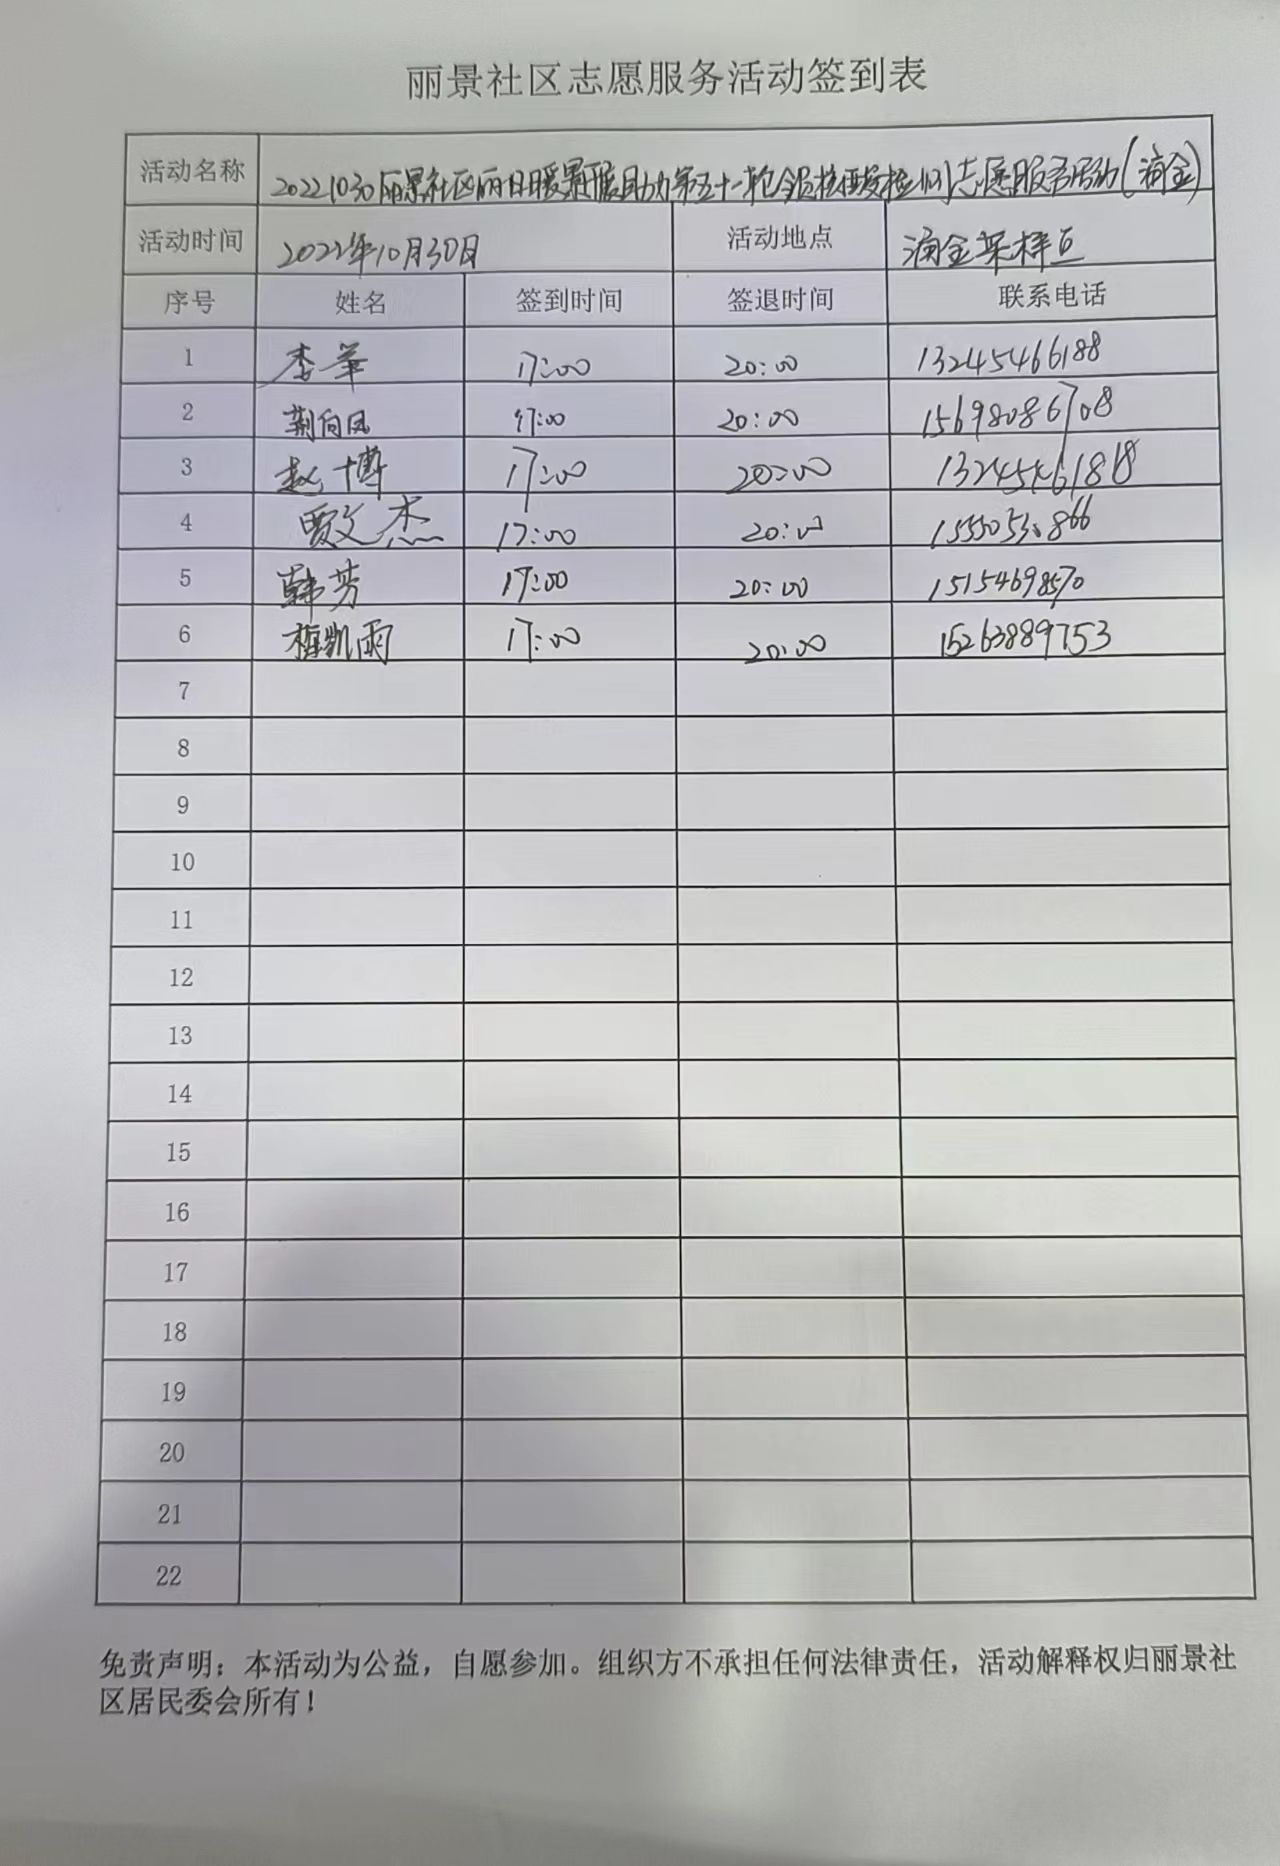 丽景社区志愿服务活动签到表
活动名称 20221030丽景社区丽日暖景 助力第五十一轮全员核酸检测志愿服务活动(海金)
活动时间 2022年10月30日 活动地点 海金采样点
序号 姓名 签到时间 签退时间 联系电话
1 李华 17:00 20:00 13245466188
2 荆向凤 17:00 20:00 15698086708
3 赵博 17:00 20:00
4 贾文杰 17:00 20:00
5 韩芳 17:00 20:00 15154698570
6 凯雨 17:00 20:00 15263889753
7
8
9
10
11
12
13
14
15
16
17
18
19
20
21
22
免责声明：本活动为公益，自愿参加。组织方不承担任何法律责任，活动解释权归丽景社
区居民委会所有！